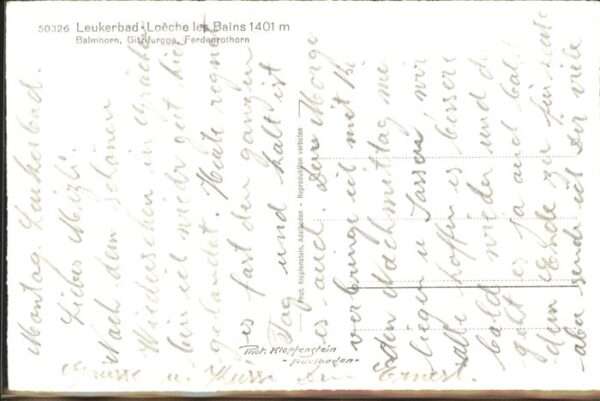 50326 Leukerbad-Loèche les Bains 1401 m
Balmhorn, Gitzifurgge, Ferdenrothorn
Montag. Leukerbad.
Lieber Mizli!
Nach dem schönen
Wiedersehen in
bin ich wieder gut hier
gelandet. Heute regnet
es fast den ganzen
Tag und kalt ist
es auch. Den Morgen
verbringe ich mit
den Nachmittag mit
liegen u. Jassen, wir
alle hoffen es bessere
bald wieder und
geht es ja auch bald
dem Ende zu für heute
aber sende ich Dir viele
Grüsse u. Küsse Dein Ernest.
Phot. Klopfenstein, Adelboden - Reproduktion verboten
Phot. Klopfenstein
- Adelboden -